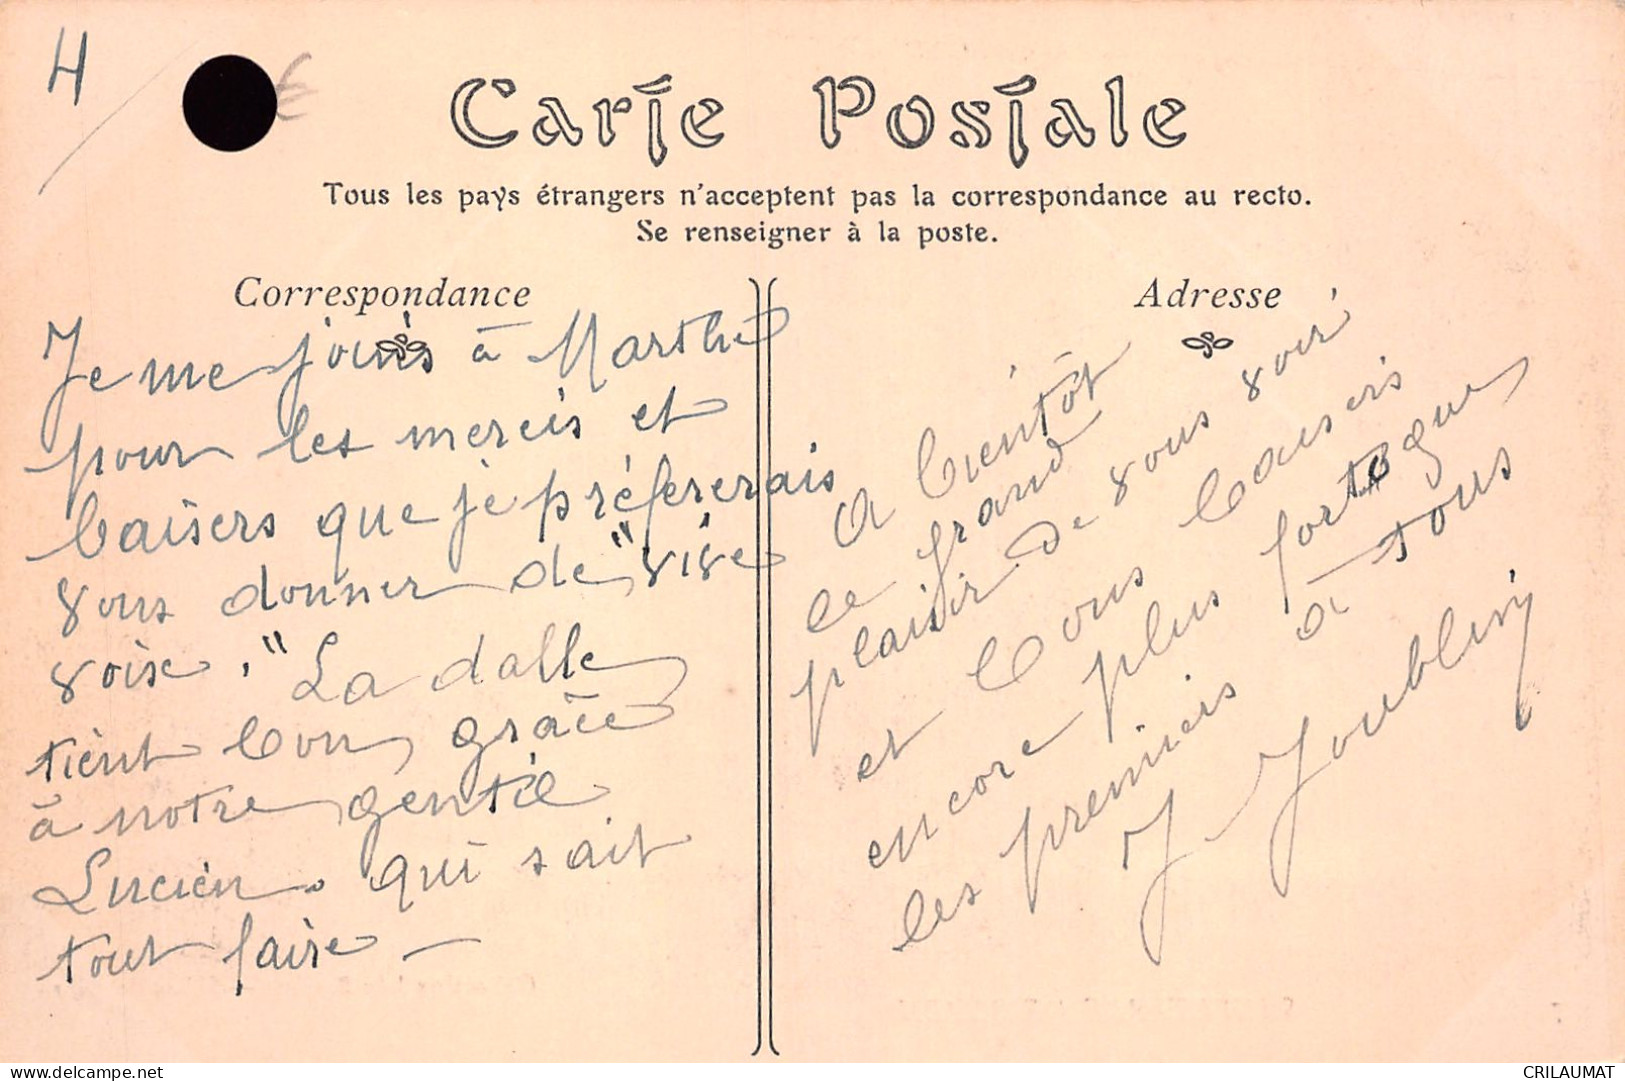 4
Carte Postale
Tous les pays étrangers n'acceptent pas la correspondance au recto.
Se renseigner à la poste.
Correspondance
Je me joins à Marthe
pour les mercis et
baisers que je préfererais
vous donner de "vive
voix." La dalle
tient bon, grâce
à notre gentil
Lucien. qui sait
tout faire —
Adresse
A bientôt
le grand
plaisir de vous voir
et bons baisers
encore plus forts que
les premiers à tous
J Joubliny
www.delcampe.net
CRILAUMAT